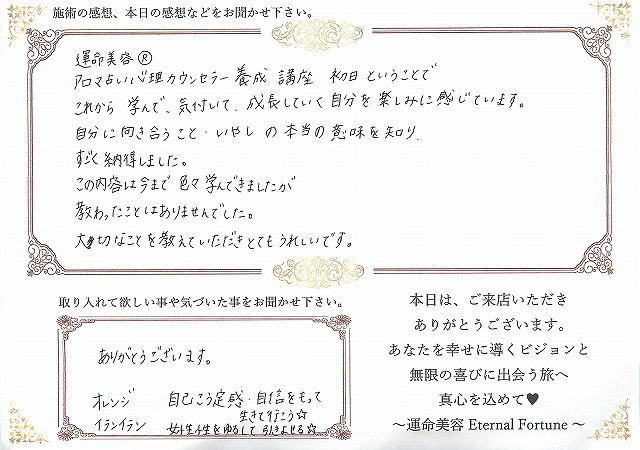 施術の感想、本日の感想などをお聞かせ下さい。
運命美容®
アロマ占い心理カウンセラー養成 講座 初日ということで
これから 学んで、気付いて、成長していく自分を楽しみに感じています。
自分に向き合うこと・いやしの本当の意味を知り
すごく納得しました。
この内容は今まで色々学んできましたが
教わったことはありませんでした。
大切なことを教えていただきとてもうれしいです。
取り入れて欲しい事や気づいた事をお聞かせ下さい。
ありがとうございます。
オレンジ 自己こう定感・自信をもって
生きて行こう☆
イランイラン 女性性をゆるして 引きよせる☆
本日は、ご来店いただき
ありがとうございます。
あなたを幸せに導くビジョンと
無限の喜びに出会う旅へ
真心を込めて♥
～運命美容 Eternal Fortune ～